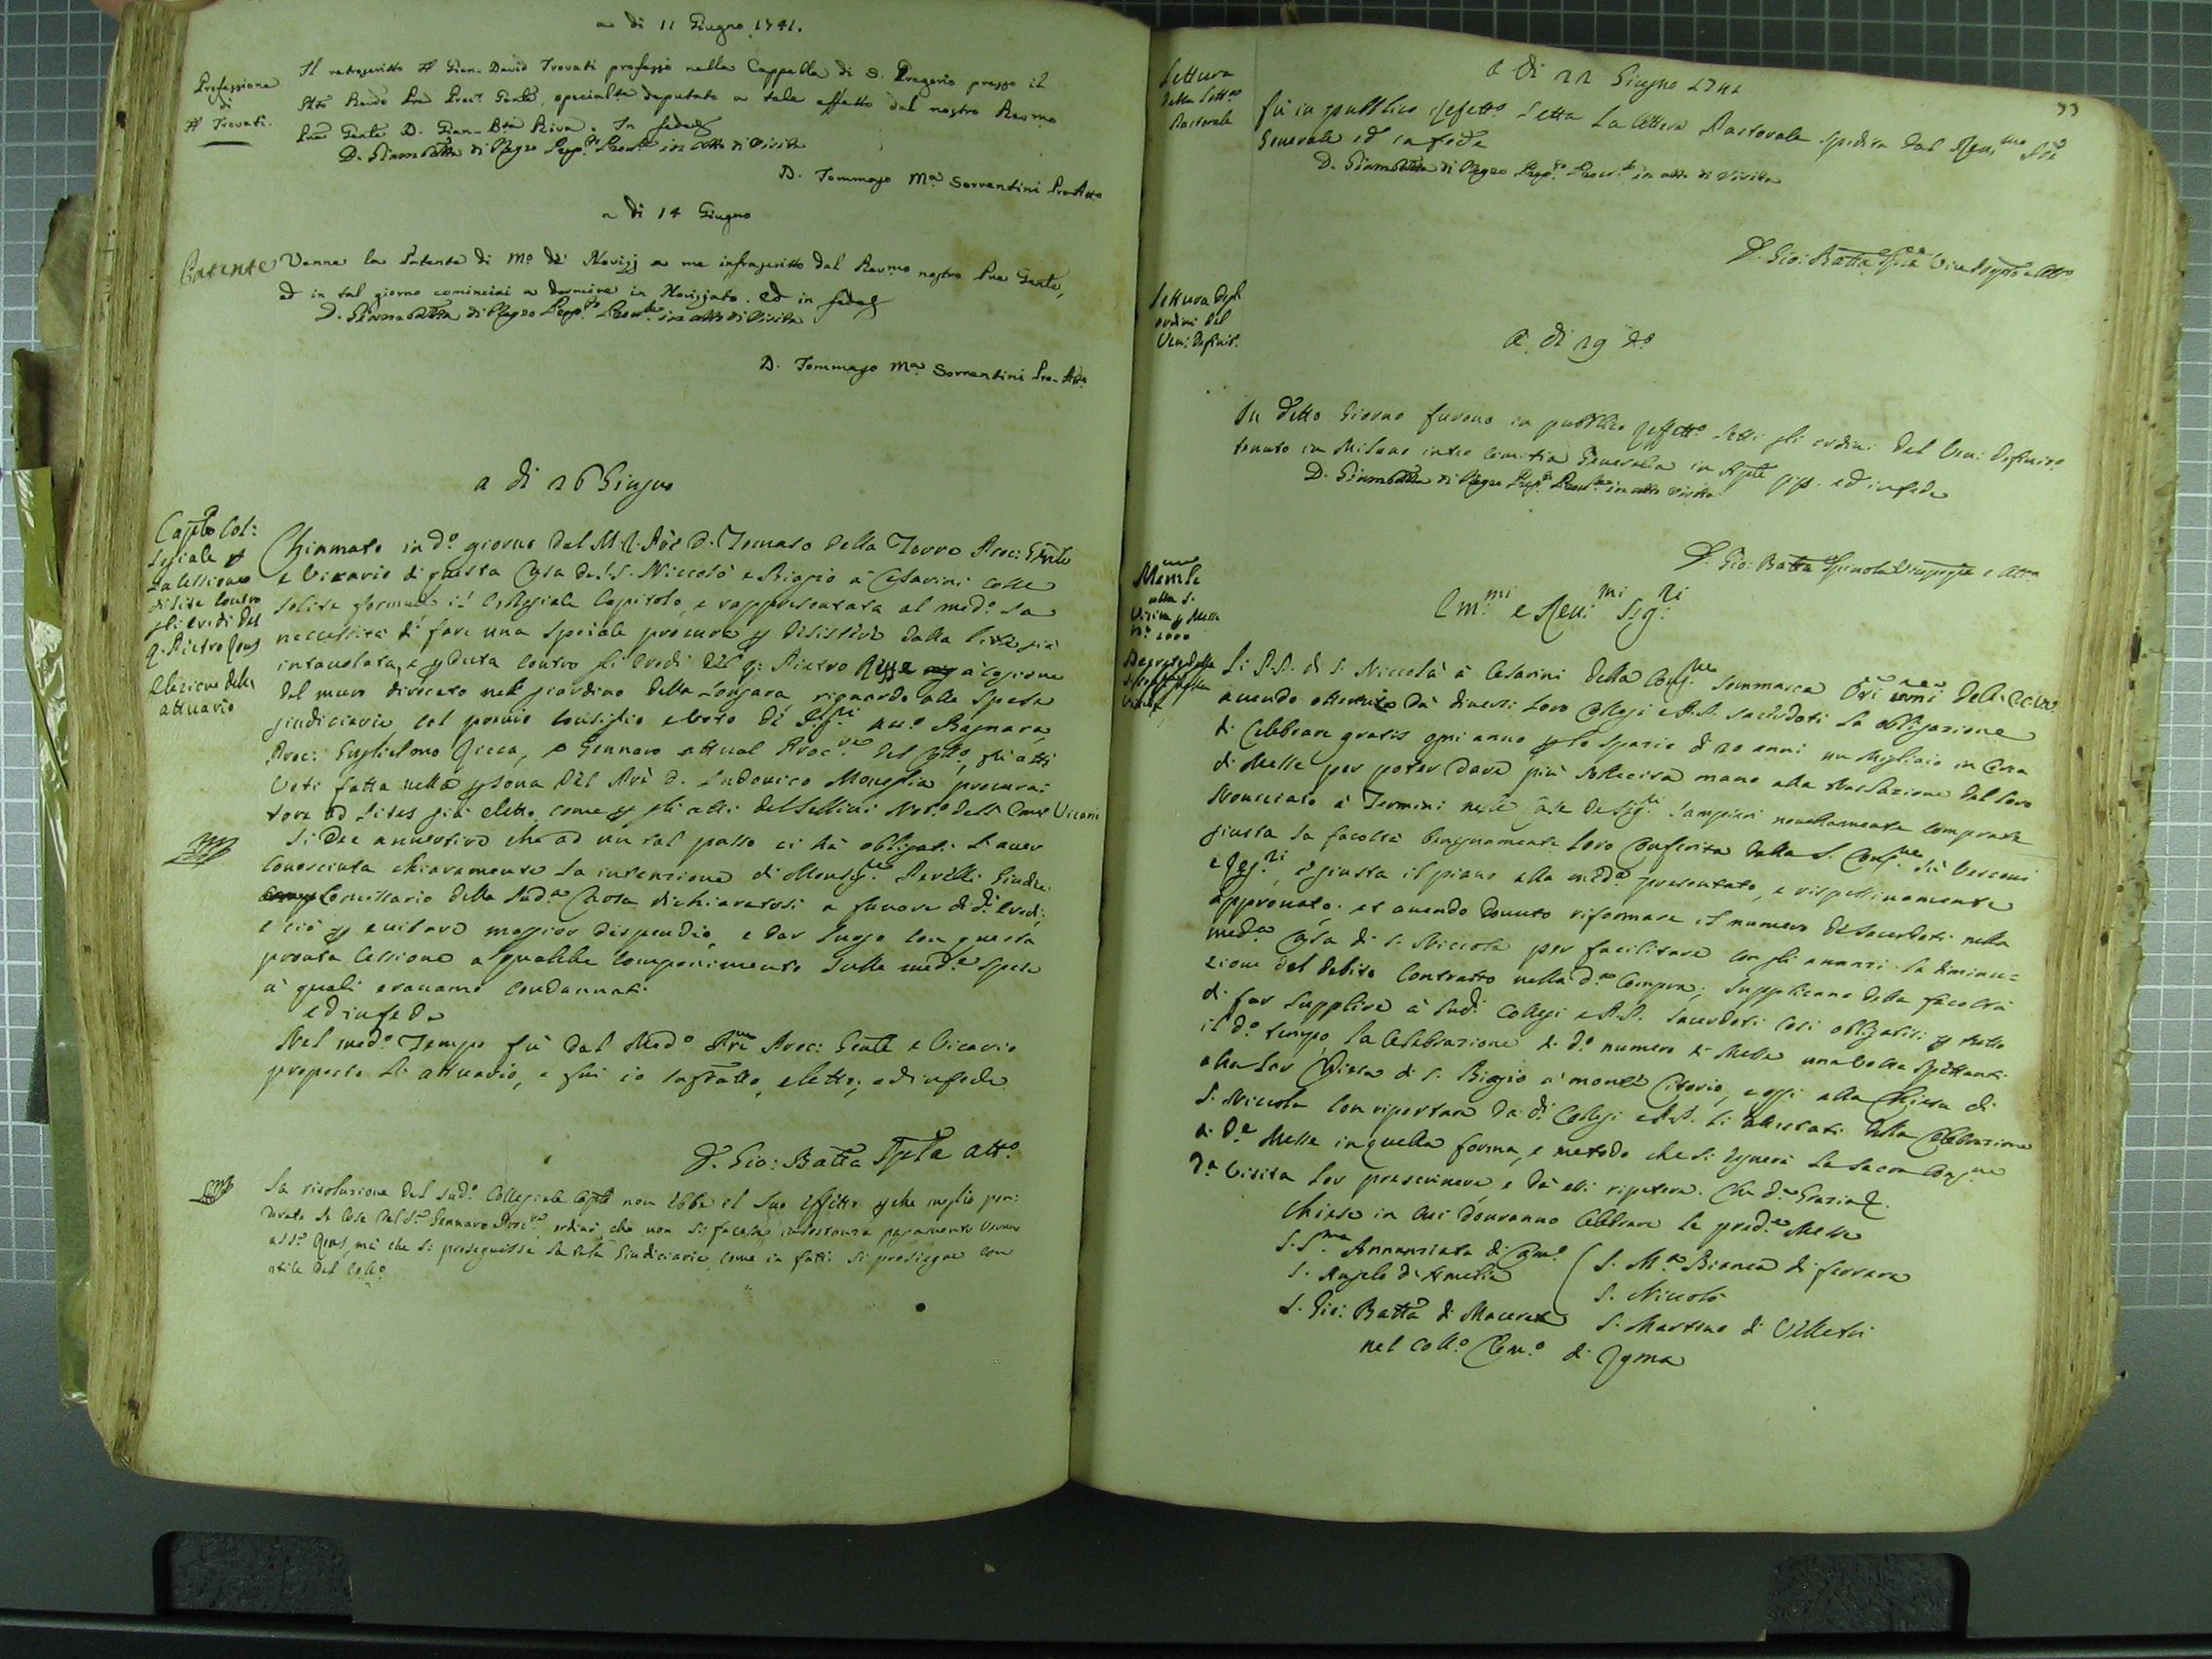 a di 11 Giugno 1741.
Professione
di
Trovati.
Il retroscritto Gian-David Trovati professò nella Cappella di S. Gregorio presso il
Rendo Pre Procr Genle, specialte deputato a tale effetto dal nostro Revmo
Pre Genle D. Gian-Bta Riva. In fede
D. GiamBatta di Negro Prepto Provle in atto di Visita
D. Tommaso Ma Sorrentini Pro-Atto
a di 14 Giugno
Patente
Venne la Patente di Mo de Novizj a me infrascritto dal Revmo nostro Pre Genle,
ed in tal giorno cominciai a dormire in Noviziato. Ed in fede
D. GiamBatta di Negro Prepto Provle in atto di Visita
D. Tommaso Ma Sorrentini Pro-Atto
a di 16 Giugno
Capolo Col:
legiale
la Cessione
di lite contro
gli eredi del
q. Pietro
Elezione dell'
attuario
Chiamato in do giorno dal M. R. Pre D. Tomaso della Torre Proc: Gnle
e Vicario di questa Casa de SS. Niccolò e Biagio a Cesarini colle
solite formule il Collegiale Capitolo, e rappresentata al medo la
necessità di fare una speciale procura p desistere dalla lite già
intavolata, e pduta contro gli eredi del q: Pietro à cagione
del muro diroccato nel giardino della Longara, riguardo alle spese
giudiciarie col previo consiglio e voto di Sigri Auo Bagnara,
Proc: Guglielmo, e Gennaro attual Procre del Collo, fu atti
Voti fatta nella psona del Pre D. Ludovico Moneglia procura:
tore ad Lites già eletto, come p gli atti del Sellini Noto dell' Emo Vicario
Si dee avvertire che ad un tal passo ci ha obligati l'aver
conosciuta chiaramente la intenzione di Monsigre Perelli Giudice
Comissario della suda Causa dichiaratosi a favore di di Eredi;
e ciò p evitare maggior dispendio, e dar luogo con questa
pronta Cessione a qualche componimento sulle mede spese
a quali eravamo condannati
ed in fede
Nel medo Tempo fù dal Medo Pre Proc: Genle e Vicario
proposto l'attuario, e fui io eletto; ed in fede
D. Gio: Batta Spla Atto
La risoluzione del sudo Collegiale Caplo non ebbe il suo effetto pche meglio pon:
derate le cose dal So Gennaro Procre, ordinò, che non si facesse pagamento
ma che si proseguisse la Giudiciaria, come in fatti si prosiegue con
utile del Collo
33
Lettura
della Lettra
Pastorale
a di 22 Giugno 1741
fù in pubblico Refetto Letta La lettera Pastorale spedita dal Revmo Pre
Generale ed in fede
D. GiamBatta di Negro Prepto Provle in atto di Visita
D. Gio: Batta Spla Vicepposto e Atto
Lettura degli
ordini del
Ven: Definit.
A di 29 do
In detto Giorno furono in pubblico Refetto Letti gli ordini del Ven: Definito
tenuto in Milano intra Comitia Generalia in Aple ed in fede
D. GiamBatta di Negro Prepto Provle in atto Visita
D. Gio: Batta Spinola Viceppto e Atto
Emi e Revmi Sigri
Memle
alla S.
Visita p Messe
No 1000
Li P.P. di S. Niccolò à Cesarini della Congne Sommasca Ori umi dell' EE.VV.
avendo ottenuto da diversi loro Collegi e P.P. sacerdoti la obligazione
di Celebrare gratis ogni anno p lo spazio di 20 anni un Migliaio in Circa
di Messe per poter dare più sollecita mano alla traslazione del loro
Noviziato à Termini nelle Case de Sigri Sampieri novellamente comprate
giusta la facoltà benignamente loro Conferita dalla S. Congne de Vescovi
e Regri, e giusta il piano alla meda presentato, e rispettivamente
approvato: et avendo dovuto riformare il numero de Sacerdoti nella
meda Casa di S. Niccolò per facilitare con gli avanzi la diminu=
zione del debito Contratto nella da Compra; supplicano della facoltà
di far supplire à sudi Collegi e P.P. sacerdoti così obligatisi p tutto
il do tempo la Celebrazione di do numero di Messe una volta spettanti
alla lor Chiesa di S. Biagio à monte Citorio, e oggi alla Chiesa di
S. Niccolò con riportare da di Collegi e P.P. li attestati della Celebrazione
di de Messe in quella forma, e metodo che si degnerà la sacra Congne
da Visita lor prescrivere, e da essi ripetere. Che da Grazia
Chiese in cui dovranno Celebrare le prede Messe
S.Sma Annunziata di Camo
S. Angelo di Amelia
S. Gio: Batta di Macerata
S. Ma Bianca di ferrara
S. Niccolò
S. Martino di Velletri
nel Collo Clemo di Roma